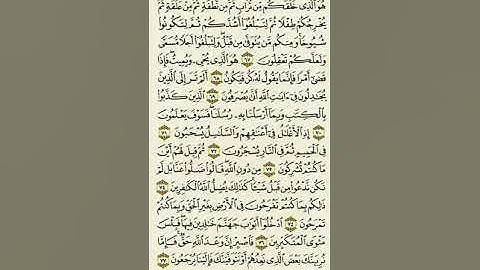 هُوَ ٱلَّذِى خَلَقَكُم مِّن تُرَابٍ ثُمَّ مِن نُّطْفَةٍ ثُمَّ مِنْ عَلَقَةٍ ثُمَّ
يُخْرِجُكُمْ طِفْلًا ثُمَّ لِتَبْلُغُوٓا۟ أَشُدَّكُمْ ثُمَّ لِتَكُونُوا۟
شُيُوخًا وَمِنكُم مَّن يُتَوَفَّىٰ مِن قَبْلُ وَلِتَبْلُغُوٓا۟ أَجَلًا مُّسَمًّى
وَلَعَلَّكُمْ تَعْقِلُونَ ٦٧ هُوَ ٱلَّذِى يُحْىِۦ وَيُمِيتُ فَإِذَا
قَضَىٰٓ أَمْرًا فَإِنَّمَا يَقُولُ لَهُۥ كُن فَيَكُونُ ٦٨ أَلَمْ تَرَ إِلَى ٱلَّذِينَ
يُجَٰدِلُونَ فِىٓ ءَايَٰتِ ٱللَّهِ أَنَّىٰ يُصْرَفُونَ ٦٩ ٱلَّذِينَ كَذَّبُوا۟
بِٱلْكِتَٰبِ وَبِمَآ أَرْسَلْنَا بِهِۦ رُسُلَنَا فَسَوْفَ يَعْلَمُونَ
٧٠ إِذِ ٱلْأَغْلَٰلُ فِىٓ أَعْنَٰقِهِمْ وَٱلسَّلَٰسِلُ يُسْحَبُونَ ٧١
فِى ٱلْحَمِيمِ ثُمَّ فِى ٱلنَّارِ يُسْجَرُونَ ٧٢ ثُمَّ قِيلَ لَهُمْ أَيْنَ
مَا كُنتُمْ تُشْرِكُونَ ٧٣ مِن دُونِ ٱللَّهِ قَالُوا۟ ضَلُّوا۟ عَنَّا بَل لَّمْ
نَكُن نَّدْعُوا۟ مِن قَبْلُ شَيْـًٔا كَذَٰلِكَ يُضِلُّ ٱللَّهُ ٱلْكَٰفِرِينَ ٧٤
ذَٰلِكُم بِمَا كُنتُمْ تَفْرَحُونَ فِى ٱلْأَرْضِ بِغَيْرِ ٱلْحَقِّ وَبِمَا كُنتُمْ
تَمْرَحُونَ ٧٥ ٱدْخُلُوٓا۟ أَبْوَٰبَ جَهَنَّمَ خَٰلِدِينَ فِيهَا فَبِئْسَ
مَثْوَى ٱلْمُتَكَبِّرِينَ ٧٦ فَٱصْبِرْ إِنَّ وَعْدَ ٱللَّهِ حَقٌّ فَإِمَّا
نُرِيَنَّكَ بَعْضَ ٱلَّذِى نَعِدُهُمْ أَوْ نَتَوَفَّيَنَّكَ فَإِلَيْنَا يُرْجَعُونَ ٧٧